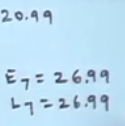 20.99
E7 = 26.99
L7 = 26.99